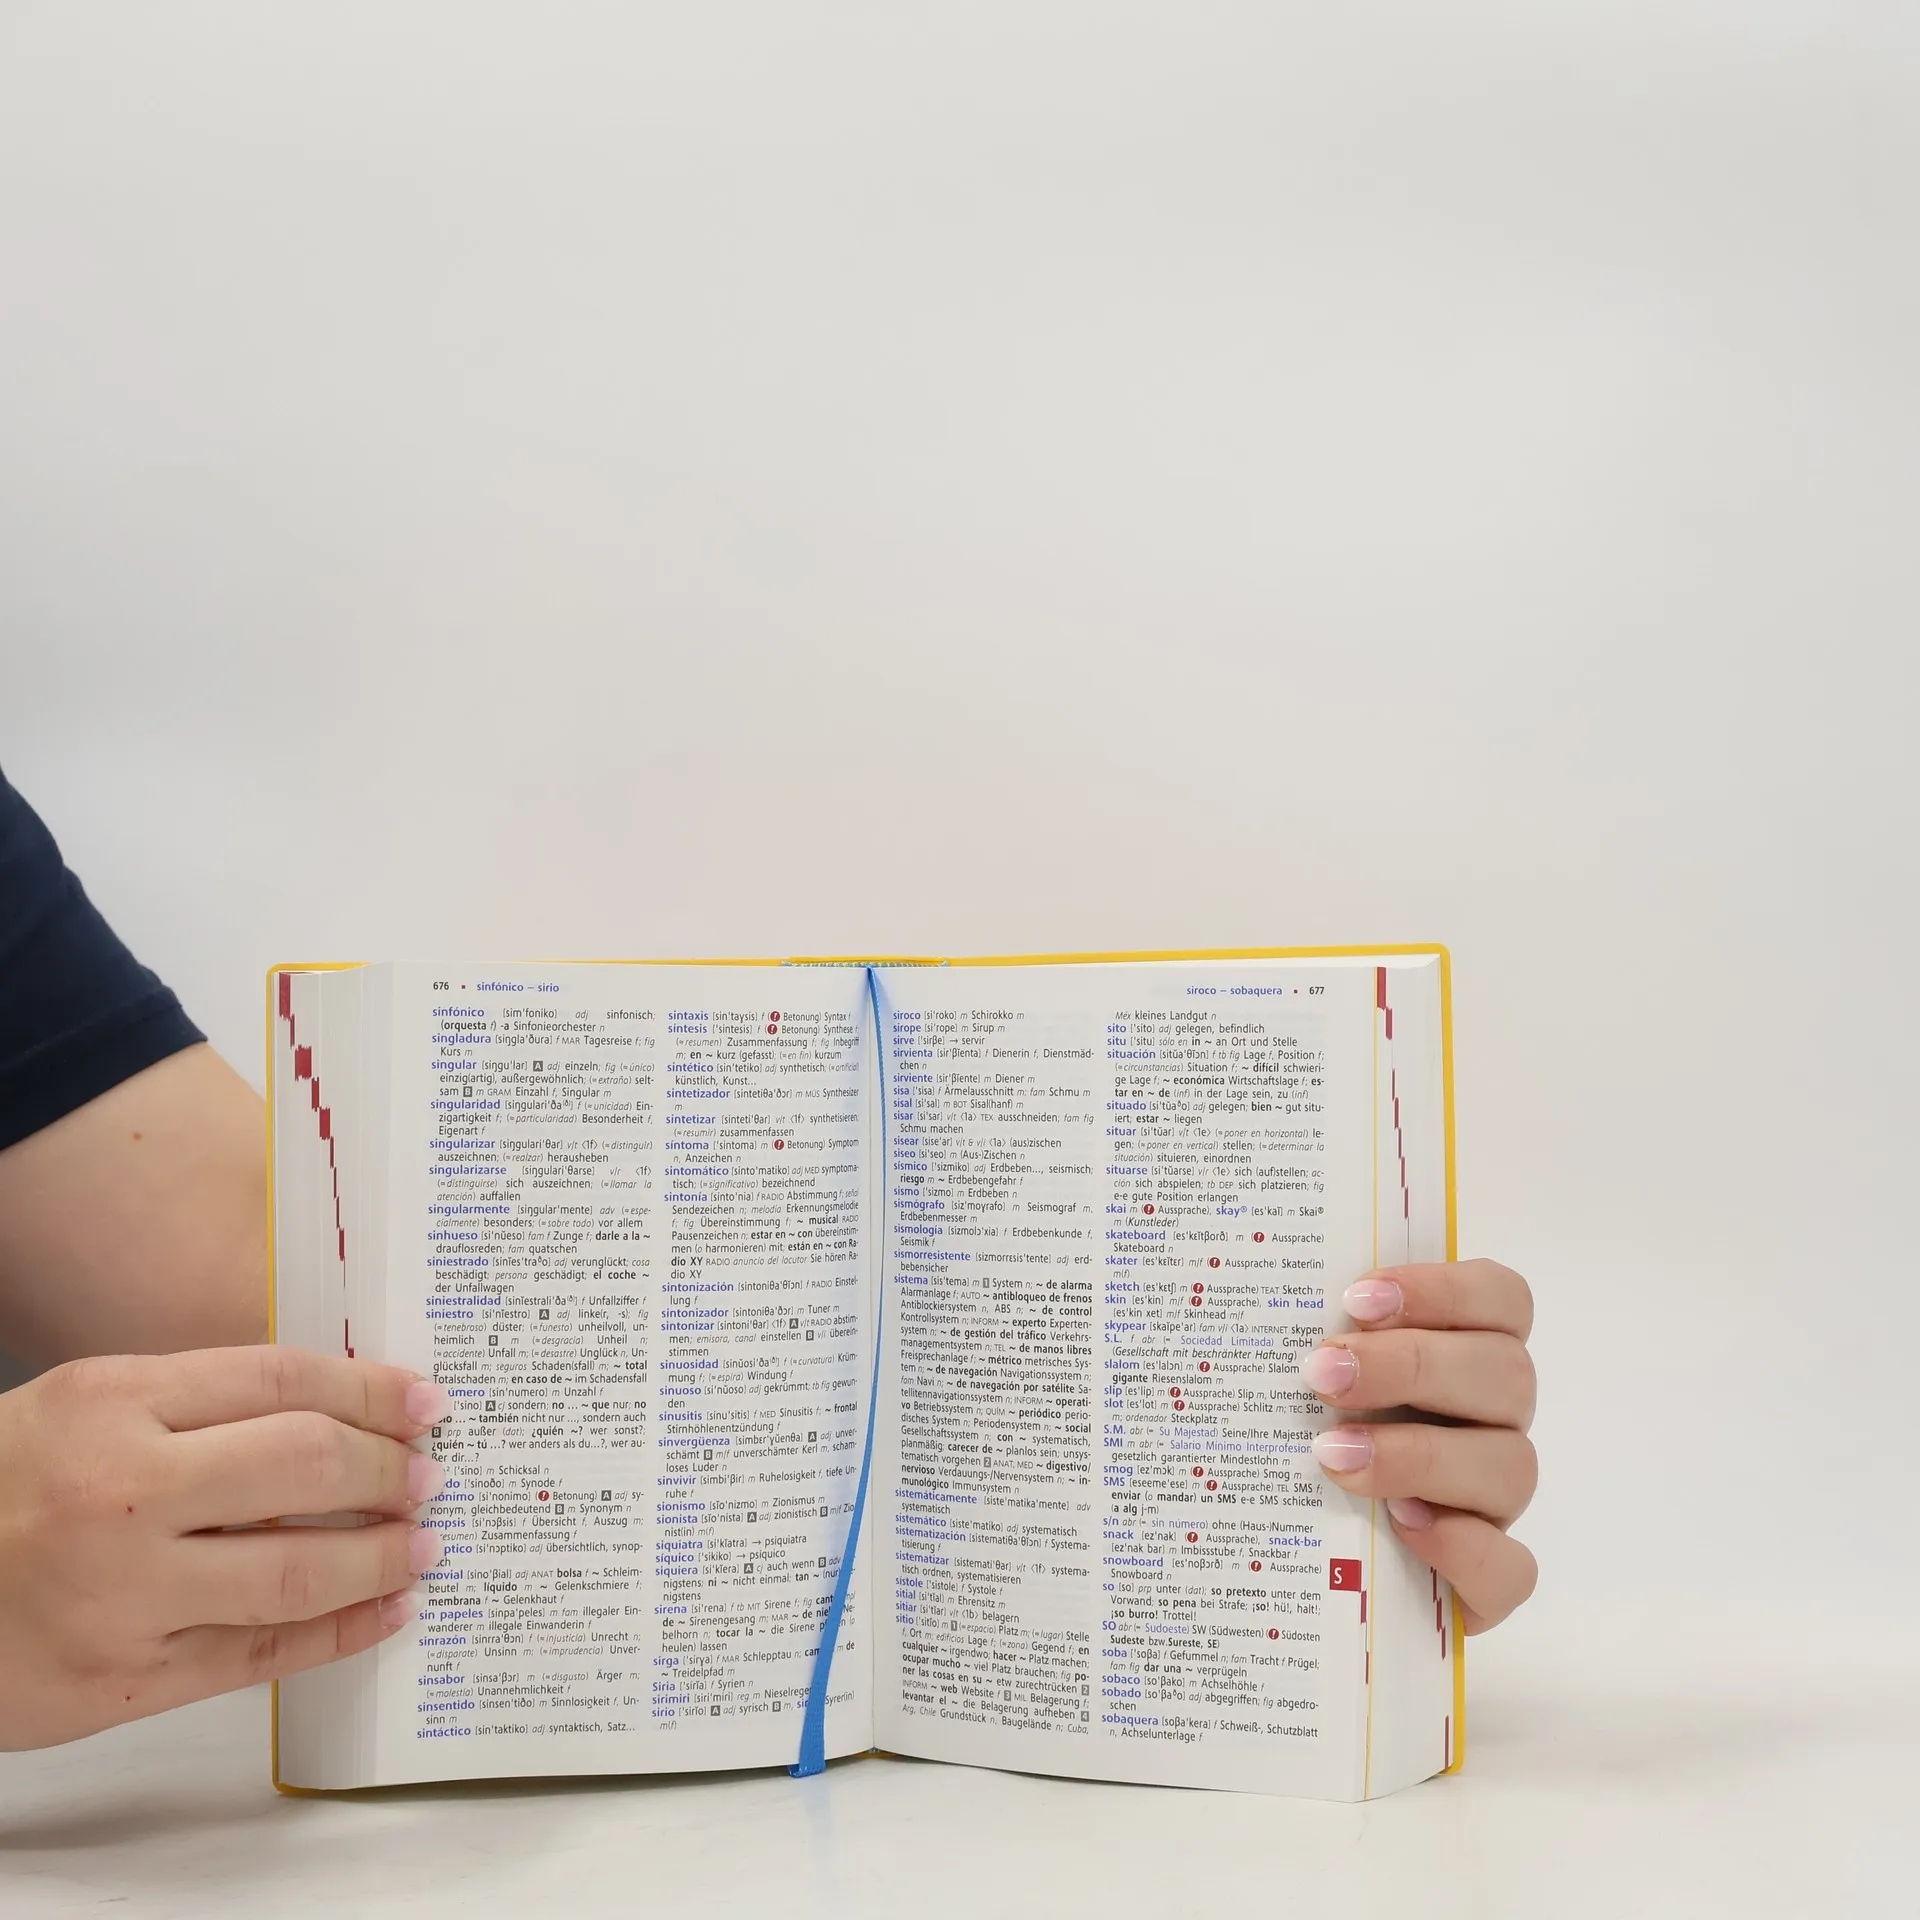 676 ▪ sinfónico – sirio
sinfónico [sim'foniko] adj sinfonisch;
(orquesta f) -a Sinfonieorchester n
singladura [siŋgla'ðura] f MAR Tagesreise f; fig
Kurs m
singular [siŋgu'lar] A adj einzeln; fig (=único)
einzig(artig), außergewöhnlich; (=extraño) selt-
sam B m GRAM Einzahl f, Singular m
singularidad [siŋgulari'ða⁽ð⁾] f (=unicidad) Ein-
zigartigkeit f; (=particularidad) Besonderheit f,
Eigenart f
singularizar [siŋgulari'θar] v/t ⟨1f⟩ (=distinguir)
auszeichnen; (=realzar) herausheben
singularizarse [siŋgulari'θarse] v/r ⟨1f⟩
(=distinguirse) sich auszeichnen; (=llamar la
atención) auffallen
singularmente [siŋgular'mente] adv (=espe-
cialmente) besonders; (=sobre todo) vor allem
sinhueso [si'nŭeso] fam f Zunge f; darle a la ~
drauflosreden; fam quatschen
siniestrado [sinĭes'traᵟo] adj verunglückt; cosa
beschädigt; persona geschädigt; el coche ~
der Unfallwagen
siniestralidad [sinĭestrali'ða⁽ð⁾] f Unfallziffer f
siniestro [si'nĭestro] A adj linke(r, -s); fig
(=tenebroso) düster; (=funesto) unheilvoll, un-
heimlich B m (=desgracia) Unheil n;
(=accidente) Unfall m; (=desastre) Unglück n, Un-
glücksfall m; seguros Schaden(sfall) m; ~ total
Totalschaden m; en caso de ~ im Schadensfall
úmero [sin'numero] m Unzahl f
['sino] A cj sondern; no … ~ que nur; no
… ~ también nicht nur …, sondern auch
B prp außer (dat); ¿quién ~? wer sonst?;
¿quién ~ tú …? wer anders als du…?, wer au-
ßer dir…?
² ['sino] m Schicksal n
do ['sinoðo] m Synode f
ónimo [si'nonimo] (! Betonung) A adj sy-
nonym, gleichbedeutend B m Synonym n
sinopsis [si'nɔβsis] f Übersicht f, Auszug m;
resumen) Zusammenfassung f
ptico [si'nɔptiko] adj übersichtlich, synop-
ch
sinovial [sino'βĭal] adj ANAT bolsa f ~ Schleim-
beutel m; líquido m ~ Gelenkschmiere f;
membrana f ~ Gelenkhaut f
sin papeles [sinpa'peles] m fam illegaler Ein-
wanderer m illegale Einwanderin f
sinrazón [sinrra'θɔn] f (=injusticia) Unrecht n;
(=disparate) Unsinn m; (=imprudencia) Unver-
nunft f
sinsabor [sinsa'βɔr] m (=disgusto) Ärger m;
(=molestia) Unannehmlichkeit f
sinsentido [sinsen'tiðo] m Sinnlosigkeit f, Un-
sinn m
sintáctico [sin'taktiko] adj syntaktisch, Satz…
sintaxis [sin'taɣsis] f (! Betonung) Syntax f
síntesis ['sintesis] f (! Betonung) Synthese f;
(=resumen) Zusammenfassung f; fig Inbegriff
m; en ~ kurz (gefasst); (=en fin) kurzum
sintético [sin'tetiko] adj synthetisch; (=artificial)
künstlich, Kunst…
sintetizador [sintetiθa'ðɔr] m MÚS Synthesizer
m
sintetizar [sinteti'θar] v/t ⟨1f⟩ synthetisieren;
(=resumir) zusammenfassen
síntoma ['sintoma] m (! Betonung) Symptom
n, Anzeichen n
sintomático [sinto'matiko] adj MED symptoma-
tisch; (=significativo) bezeichnend
sintonía [sinto'nia] f RADIO Abstimmung f; señal
Sendezeichen n; melodía Erkennungsmelodie
f; fig Übereinstimmung f; ~ musical RADIO
Pausenzeichen n; estar en ~ con übereinstim-
men (o harmonieren) mit; están en ~ con Ra-
dio XY RADIO anuncio del locutor Sie hören Ra-
dio XY
sintonización [sintoniθa'θĭɔn] f RADIO Einstel-
lung f
sintonizador [sintoniθa'ðɔr] m Tuner m
sintonizar [sintoni'θar] ⟨1f⟩ A v/t RADIO abstim-
men; emisora, canal einstellen B v/i überein-
stimmen
sinuosidad [sinŭosi'ða⁽ð⁾] f (=curvatura) Krüm-
mung f; (=espira) Windung f
sinuoso [si'nŭoso] adj gekrümmt; tb fig gewun-
den
sinusitis [sinu'sitis] f MED Sinusitis f; ~ frontal
Stirnhöhlenentzündung f
sinvergüenza [simbɛr'ɣŭenθa] A adj unver-
schämt B m/f unverschämter Kerl m, scham-
loses Luder n
sinvivir [simbi'βir] m Ruhelosigkeit f, tiefe Un-
ruhe f
sionismo [sĭo'nizmo] m Zionismus m
sionista [sĭo'nista] A adj zionistisch B m/f Zio-
nist(in) m(f)
siquiatra [si'kĭatra] → psiquiatra
síquico ['sikiko] → psíquico
siquiera [si'kĭera] A cj auch wenn B adv
nigstens; ni ~ nicht einmal; tan ~ (nur)
nigstens
sirena [si'rena] f tb MIT Sirene f; fig
de ~ Sirenengesang m; MAR ~ de niebla Ne-
belhorn n; tocar la ~ die Sirene
heulen) lassen
sirga ['sirɣa] f MAR Schlepptau n; m de
~ Treidelpfad m
Siria ['sirĭa] f Syrien n
sirimiri [siri'miri] reg m Nieselregen
sirio ['sirĭo] A adj syrisch B m, Syrer(in)
m(f)
siroco – sobaquera ▪ 677
siroco [si'roko] m Schirokko m
sirope [si'rope] m Sirup m
sirve ['sirβe] → servir
sirvienta [sir'βĭenta] f Dienerin f, Dienstmäd-
chen n
sirviente [sir'βĭente] m Diener m
sisa ['sisa] f Ärmelausschnitt m; fam Schmu m
sisal [si'sal] m BOT Sisal(hanf) m
sisar [si'sar] v/t ⟨1a⟩ TEX ausschneiden; fam fig
Schmu machen
sisear [sise'ar] v/t & v/i ⟨1a⟩ (aus)zischen
siseo [si'seo] m (Aus-)Zischen n
sísmico ['sizmiko] adj Erdbeben…, seismisch;
riesgo m ~ Erdbebengefahr f
sismo ['sizmo] m Erdbeben n
sismógrafo [siz'moɣrafo] m Seismograf m,
Erdbebenmesser m
sismología [sizmolɔ'xia] f Erdbebenkunde f,
Seismik f
sismorresistente [sizmorrɛsis'tente] adj erd-
bebensicher
sistema [sis'tema] m 1 System n; ~ de alarma
Alarmanlage f; AUTO ~ antibloqueo de frenos
Antiblockiersystem n, ABS n; ~ de control
Kontrollsystem n; INFORM ~ experto Experten-
system n; ~ de gestión del tráfico Verkehrs-
managementsystem n; TEL ~ de manos libres
Freisprechanlage f; ~ métrico metrisches Sys-
tem n; ~ de navegación Navigationssystem n;
fam Navi n; ~ de navegación por satélite Sa-
tellitennavigationssystem n; INFORM ~ operati-
vo Betriebssystem n; QUÍM ~ periódico perio-
disches System n, Periodensystem n; ~ social
Gesellschaftssystem n; con ~ systematisch,
planmäßig; carecer de ~ planlos sein; unsys-
tematisch vorgehen 2 ANAT, MED ~ digestivo/
nervioso Verdauungs-/Nervensystem n; ~ in-
munológico Immunsystem n
sistemáticamente [siste'matika'mente] adv
systematisch
sistemático [siste'matiko] adj systematisch
sistematización [sistematiθa'θĭɔn] f Systema-
tisierung f
sistematizar [sistemati'θar] v/t ⟨1f⟩ systema-
tisch ordnen, systematisieren
sístole ['sistole] f Systole f
sitial [si'tĭal] m Ehrensitz m
sitiar [si'tĭar] v/t ⟨1b⟩ belagern
sitio ['sitĭo] m 1 (=espacio) Platz m; (=lugar) Stelle
f, Ort m; edificios Lage f; (=zona) Gegend f; en
cualquier ~ irgendwo; hacer ~ Platz machen;
ocupar mucho ~ viel Platz brauchen; fig po-
ner las cosas en su ~ etw zurechtrücken 2
INFORM ~ web Website f 3 MIL Belagerung f;
levantar el ~ die Belagerung aufheben 4
Arg, Chile Grundstück n, Baugelände n; Cuba,
Méx kleines Landgut n
sito ['sito] adj gelegen, befindlich
situ ['situ] sólo en in ~ an Ort und Stelle
situación [sitŭa'θĭɔn] f tb fig Lage f, Position f;
(=circunstancias) Situation f; ~ difícil schwieri-
ge Lage f; ~ económica Wirtschaftslage f; es-
tar en ~ de (inf) in der Lage sein, zu (inf)
situado [si'tŭaᵟo] adj gelegen; bien ~ gut situ-
iert; estar ~ liegen
situar [si'tŭar] v/t ⟨1e⟩ (=poner en horizontal) le-
gen; (=poner en vertical) stellen; (=determinar la
situación) situieren, einordnen
situarse [si'tŭarse] v/r ⟨1e⟩ sich (auf)stellen; ac-
ción sich abspielen; tb DEP sich platzieren; fig
e-e gute Position erlangen
skai m (! Aussprache), skay® [es'kaĭ] m Skai®
m (Kunstleder)
skateboard [es'kɛĭtβɔrð] m (! Aussprache)
Skateboard n
skater [es'kɛĭter] m/f (! Aussprache) Skater(in)
m(f)
sketch [es'kɛtʃ] m (! Aussprache) TEAT Sketch m
skin [es'kin] m/f (! Aussprache), skin head
[es'kin xet] m/f Skinhead m/f
skypear [skaĭpe'ar] fam v/i ⟨1a⟩ INTERNET skypen
S.L. f abr (= Sociedad Limitada) GmbH f
(Gesellschaft mit beschränkter Haftung)
slalom [es'lalɔn] m (! Aussprache) Slalom
gigante Riesenslalom m
slip [es'lip] m (! Aussprache) Slip m, Unterhose
slot [es'lot] m (! Aussprache) Schlitz m; TEC Slot
m; ordenador Steckplatz m
S.M. abr (= Su Majestad) Seine/Ihre Majestät f
SMI m abr (= Salario Mínimo Interprofesion
gesetzlich garantierter Mindestlohn m
smog [ez'mɔk] m (! Aussprache) Smog m
SMS [eseeme'ese] m (! Aussprache) TEL SMS f;
enviar (o mandar) un SMS e-e SMS schicken
(a alg j-m)
s/n abr (= sin número) ohne (Haus-)Nummer
snack [ez'nak] (! Aussprache), snack-bar
[ez'nak bar] m Imbissstube f, Snackbar f
snowboard [es'noβɔrð] m (! Aussprache)
Snowboard n
so [so] prp unter (dat); so pretexto unter dem
Vorwand; so pena bei Strafe; ¡so! hü!, halt!;
¡so burro! Trottel!
SO abr (= Sudoeste) SW (Südwesten) (! Südosten
Sudeste bzw.Sureste, SE)
soba ['soβa] f Gefummel n; fam Tracht f Prügel;
fam fig dar una ~ verprügeln
sobaco [so'βako] m Achselhöhle f
sobado [so'βaᵟo] adj abgegriffen; fig abgedro-
schen
sobaquera [soβa'kera] f Schweiß-, Schutzblatt
n, Achselunterlage f
S